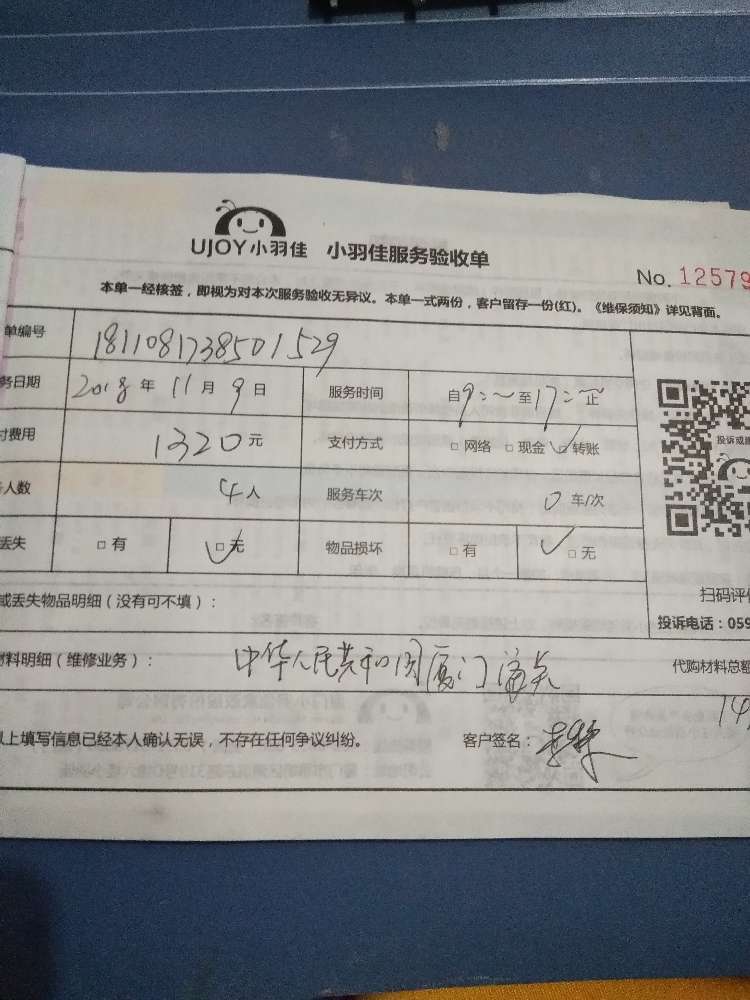 UJOY小羽佳 小羽佳服务验收单
No. 12579
本单一经核签，即视为对本次服务验收无异议。本单一式两份，客户留存一份(红)。《维保须知》详见背面。
单编号 1811081738501529
务日期 2018 年 11 月 9 日 服务时间 自 9: 至 17: 止
付费用 1320 元 支付方式 □ 网络 □ 现金 □ 转账
人数 4 人 服务车次 0 车/次
丢失 □ 有 □ 无 物品损坏 □ 有 □ 无
投诉或
扫码评价
或丢失物品明细（没有可不填）：
投诉电话：059
材料明细（维修业务）： 中华人民共和国厦门海关
代购材料总额
以上填写信息已经本人确认无误，不存在任何争议纠纷。 客户签名：